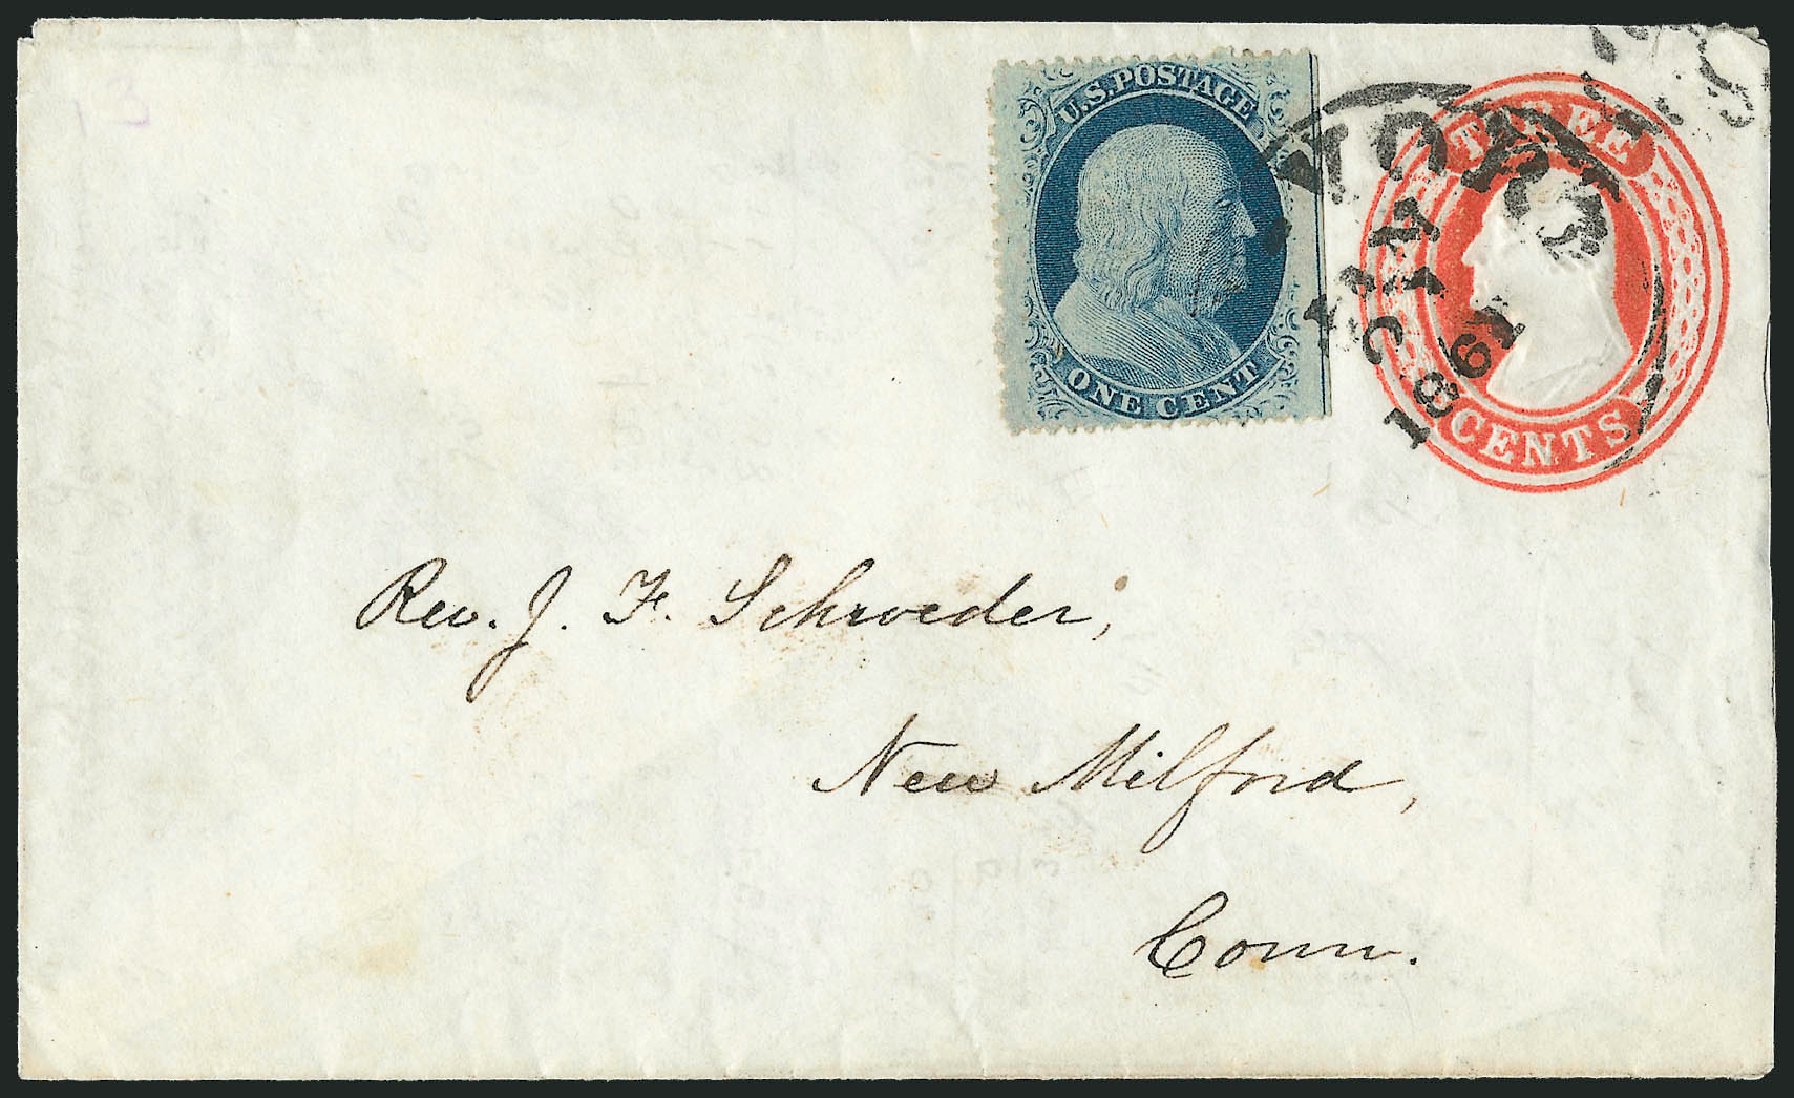 13
U.S. POSTAGE
ONE CENT
THREE
CENTS
YORK
JAN
1861
Rev. J. F. Schroeder,
New Milford,
Conn.